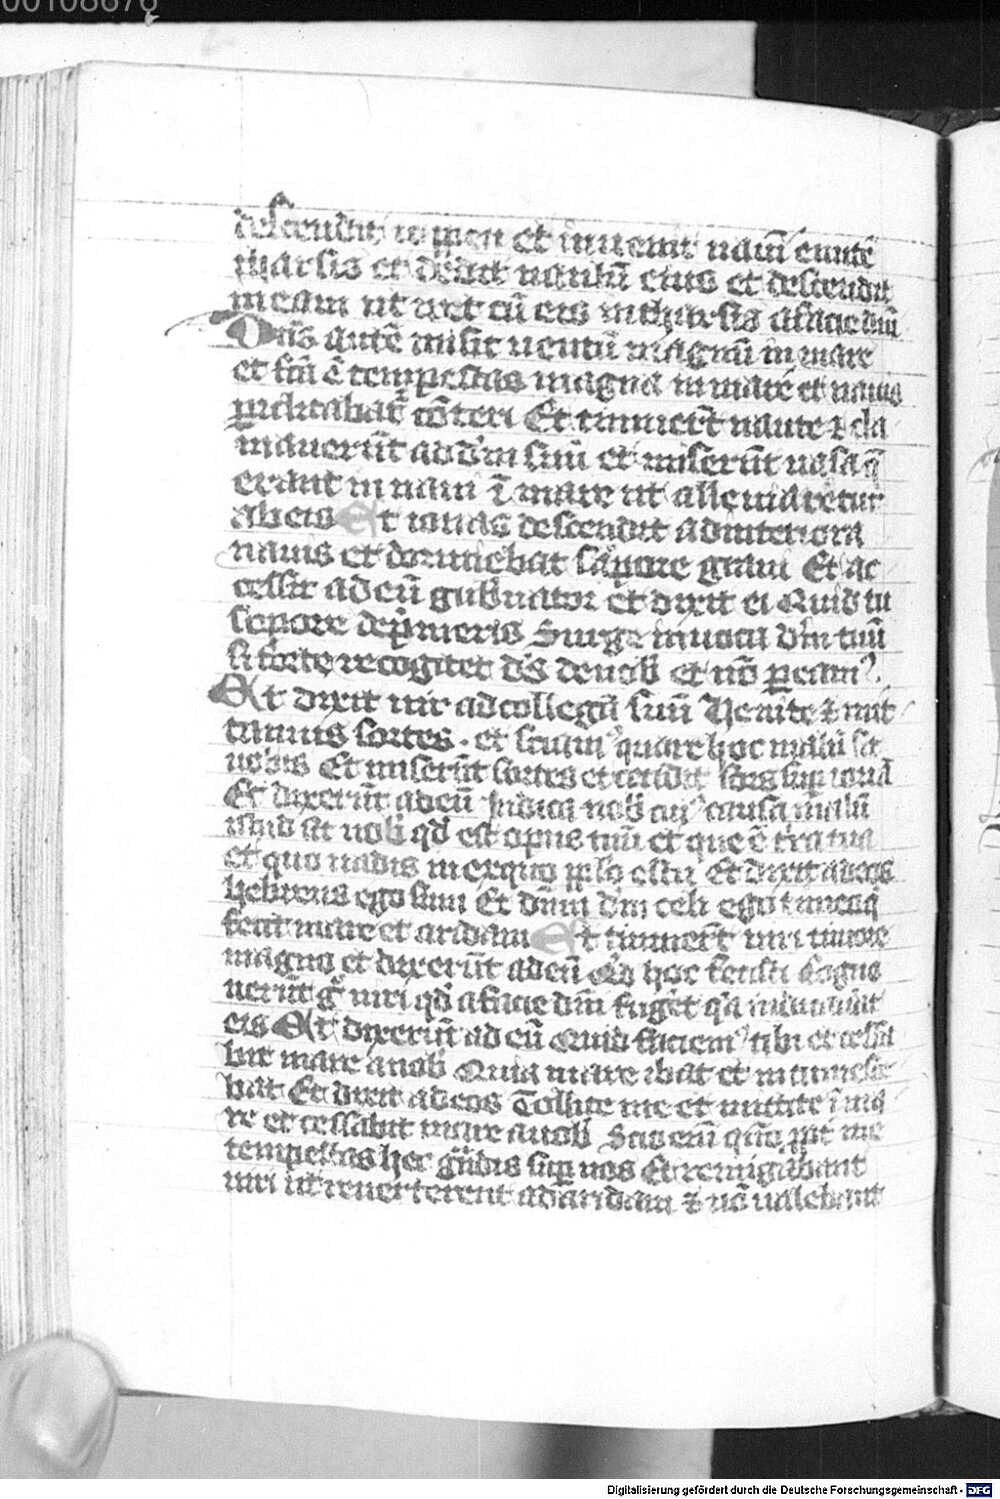 00108678
descendit in ioppen et inuenit nauim euntē
tharsis et dedit naulū eius et descendit
in eam ut iret cū eis in tharsis a facie dn̄i
Dn̄s autē misit uentū magnū in mare
et fc̄ā ē tempestas magna in mare et nauis
periclitabat᷑ cōteri Et timuer̄t naute ⁊ cla
mauerūt ad dm̄ suū et miserūt uasa q̄
erant in naui ī mare ut alleuiaretur
ab eis Et ionas descendit ad interiora
nauis et dormiebat sopore graui Et ac
cessit ad eū gub̄nator et dixit ei Quid tu
sopore dep̄meris Surge inuoca dm̄ tuū
si forte recogitet ds̄ de nob̄ et nō ꝑeamꝰ
Et dixit uir ad collegā suū Venite ⁊ mit
tamus sortes . et sciamꝰ quare hoc malū sit
nobis Et miserūt sortes et cecidit sors suꝑ ionā
Et dixerūt ad eū Indica nob̄ cuiꝰ causa malū
istud sit nob̄ qd̄ est opus tuū et que ē t̄ra tua
et quo uadis uel ex quo pp̄lo es tu Et dixit ad eos
hebreus ego sum Et dn̄m dm̄ celi ego timeo q̄
fecit mare et aridam Et timuer̄t uiri timore
magno et dixerūt ad eū Qd̄ hoc fecisti Cogno
uerūt g̊ uiri qd̄ a facie dn̄i fuget q̇a indicauat
eis Et dixerūt ad eū Quid faciemꝰ tibi et cessa
bit mare a nob̄ Quia mare ibat et intumesce
bat Et dixit ad eos Tollite me et mittite ī ma
re et cessabit mare a uob̄ Scio em̄ quō ꝓpt̄ me
tempestas hec g̊ndis suꝑ uos Et remigabant
uiri ut reuerterent ad aridam ⁊ nō ualebant
Digitalisierung gefördert durch die Deutsche Forschungsgemeinschaft - DFG